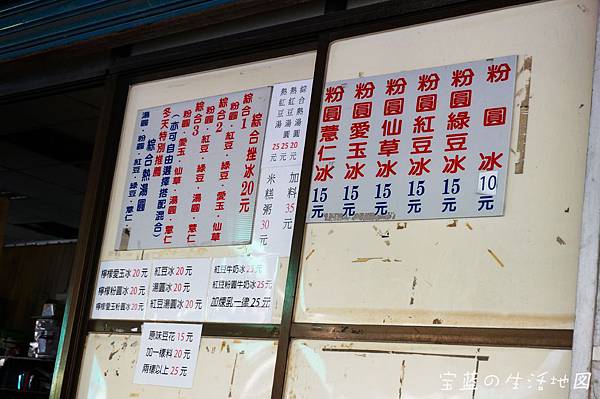 粉圓冰 10
粉圓綠豆冰 15
粉圓紅豆冰 15
粉圓仙草冰 15
粉圓愛玉冰 15元
粉圓薏仁冰 15元
綜合熱湯圓
熱紅豆湯圓 20元
熱紅豆湯 25元
加料 35元
米糕粥 30元
綜合挫冰20元
綜合1
粉圓、紅豆、愛玉、仙草
綜合2
粉圓、紅豆、綠豆、湯圓
綜合3
粉圓、愛玉、仙草、湯圓、薏仁
(亦可自由選擇搭配混合)
冬天特別推薦
綜合熱湯圓
湯圓、粉圓、紅豆、綠豆、薏仁
檸檬愛玉冰 20元
檸檬粉圓冰 20元
檸檬愛玉粉圓冰 20元
紅豆冰 20元
湯圓冰 20元
紅豆湯圓冰 20元
紅豆牛奶冰 25元
紅豆粉圓牛奶冰 25元
加煉乳一律 25元
原味豆花 15元
加一樣料 20元
兩樣以上 25元
宝蓝の生活地図